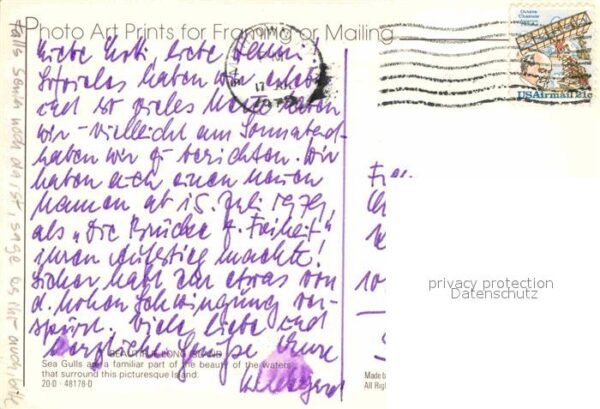 Photo Art Prints for Framing or Mailing
Liebe Emti, liebe
haben wir erlebt
und so vieles Neue haben
wir – vielleicht am Sonnabend
haben wir zu berichten. Wir
haben auch einen neuen
Namen ab 15. Juli 1979,
als „Die Brücke z. Freiheit"
ihren Aufstieg machte!
Sicher habt Ihr etwas von
d. hohen Schwingung ver-
spürt. Viele liebe und
herzliche Grüße Eure
Hildegard
Falls Senta noch da ist, sage es ihr – auch
BEAUTIFUL LONG ISLAND
Sea Gulls are a familiar part of the beauty of the waters
that surround this picturesque Island.
20-D - 48178-D
Octave
Chanute
USAirmail 21c
17
privacy protection
Datenschutz
Made b
All Righ